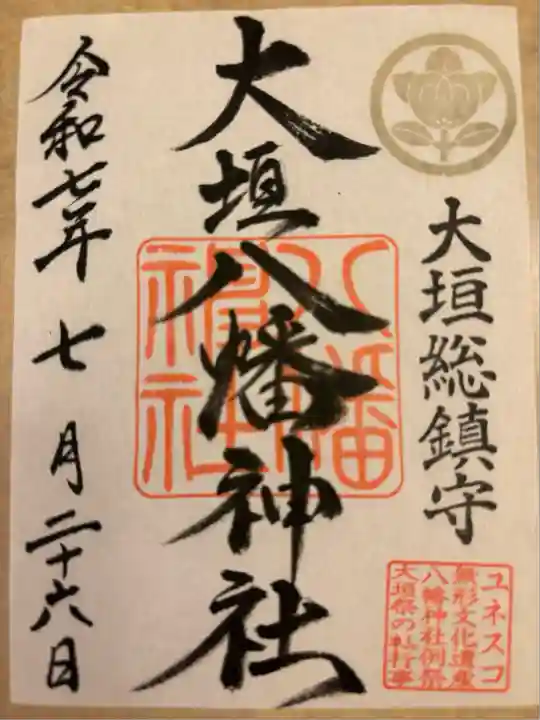 大垣総鎮守
ユネスコ
無形文化遺産
八幡神社例祭
大垣祭の軕行事
大垣八幡神社
八幡
神社
令和七年七月二十六日